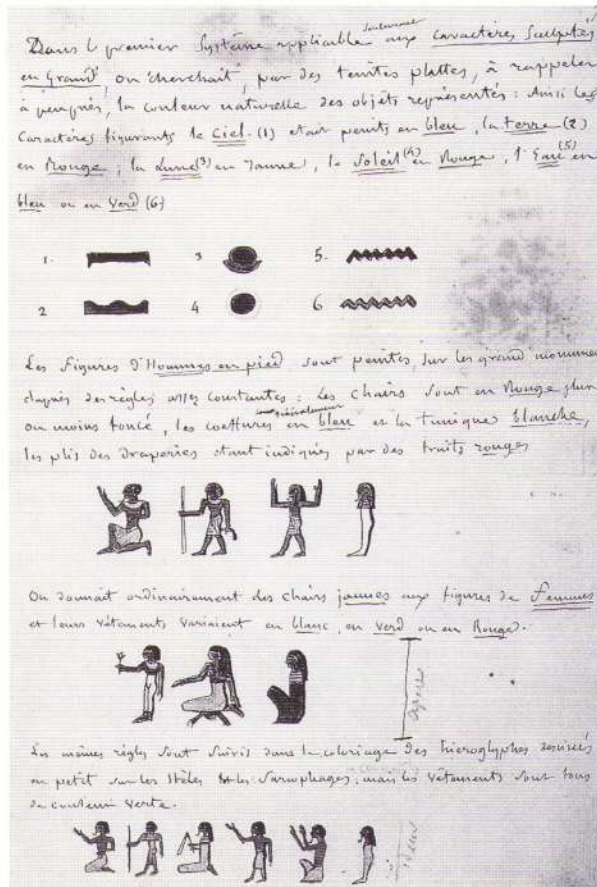 seulement
Dans le premier Système applicable aux Caractères Sculptés
en Grand, on cherchait, par des teintes plattes, à rappeler
à peuprès, la couleur naturelle des objets représentés : Ainsi les
Caractères figurants le Ciel (1) était peints en bleu, la terre (2)
en Rouge ; la Lune (3) en Jaune, le Soleil (4) en Rouge, l'Eau (5) en
bleu ou en Verd (6)
1. 3 5.
2 4 6
Les Figures d'Hommes en pied sont peintes, sur les grand
d'après des règles assez constantes : Les Chairs sont en Rouge plus
ou moins foncé, les coeffures en bleu et la tunique blanche,
généralement
les plis des draperies étant indiqués par des traits rouges
On donnait ordinairement des Chairs jaunes aux figures de Femmes
et leurs vêtements variaient en blanc, en verd ou en Rouge.
Les mêmes règles sont suivis dans le coloriage des hieroglyphes dessinés
en petit sur les Stèles les Sarcophages ; mais les vêtements sont tous
de couleur verte.